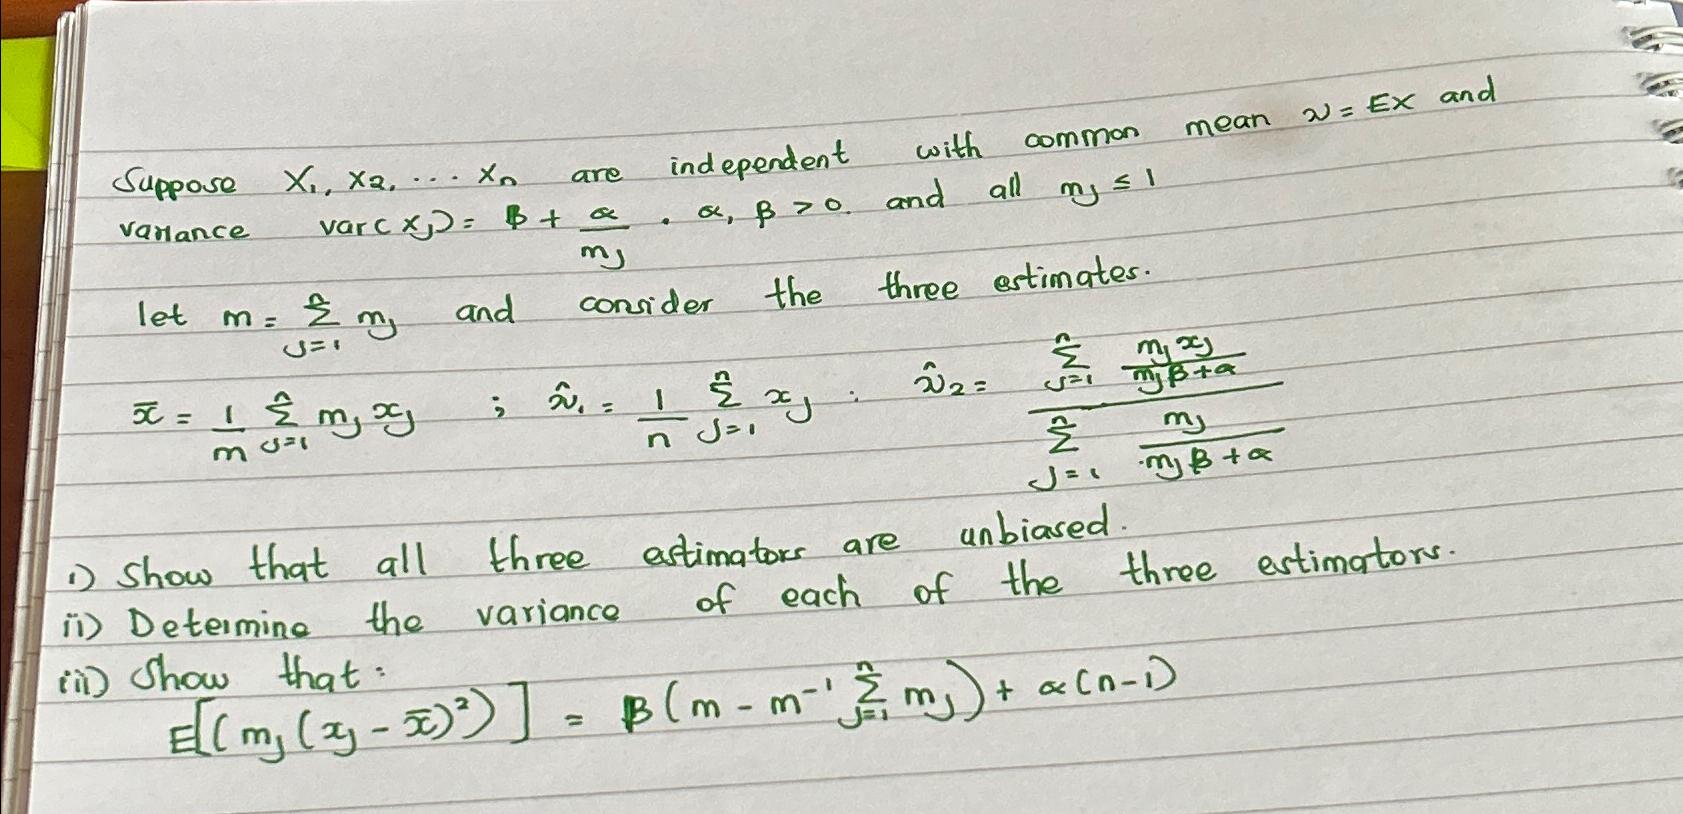 Suppose X₁, X₂, ... Xₙ are independent with common mean ν = EX and
variance var(Xⱼ) = β + α/mⱼ . α, β > 0. and all mⱼ ≤ 1
let m = Σⱼ₌₁ⁿ mⱼ and consider the three estimates.
x̄ = 1/m Σⱼ₌₁ⁿ mⱼ xⱼ ; ν̂₁ = 1/n Σⱼ₌₁ⁿ xⱼ . ν̂₂ = (Σⱼ₌₁ⁿ mⱼxⱼ/(mⱼβ+α)) / (Σⱼ₌₁ⁿ mⱼ/(mⱼβ+α))
i) Show that all three estimators are unbiased.
ii) Determine the variance of each of the three estimators.
iii) Show that:
E[(mⱼ(xⱼ - x̄)²)] = β(m - m⁻¹ Σⱼ₌₁ⁿ mⱼ) + α(n-1)